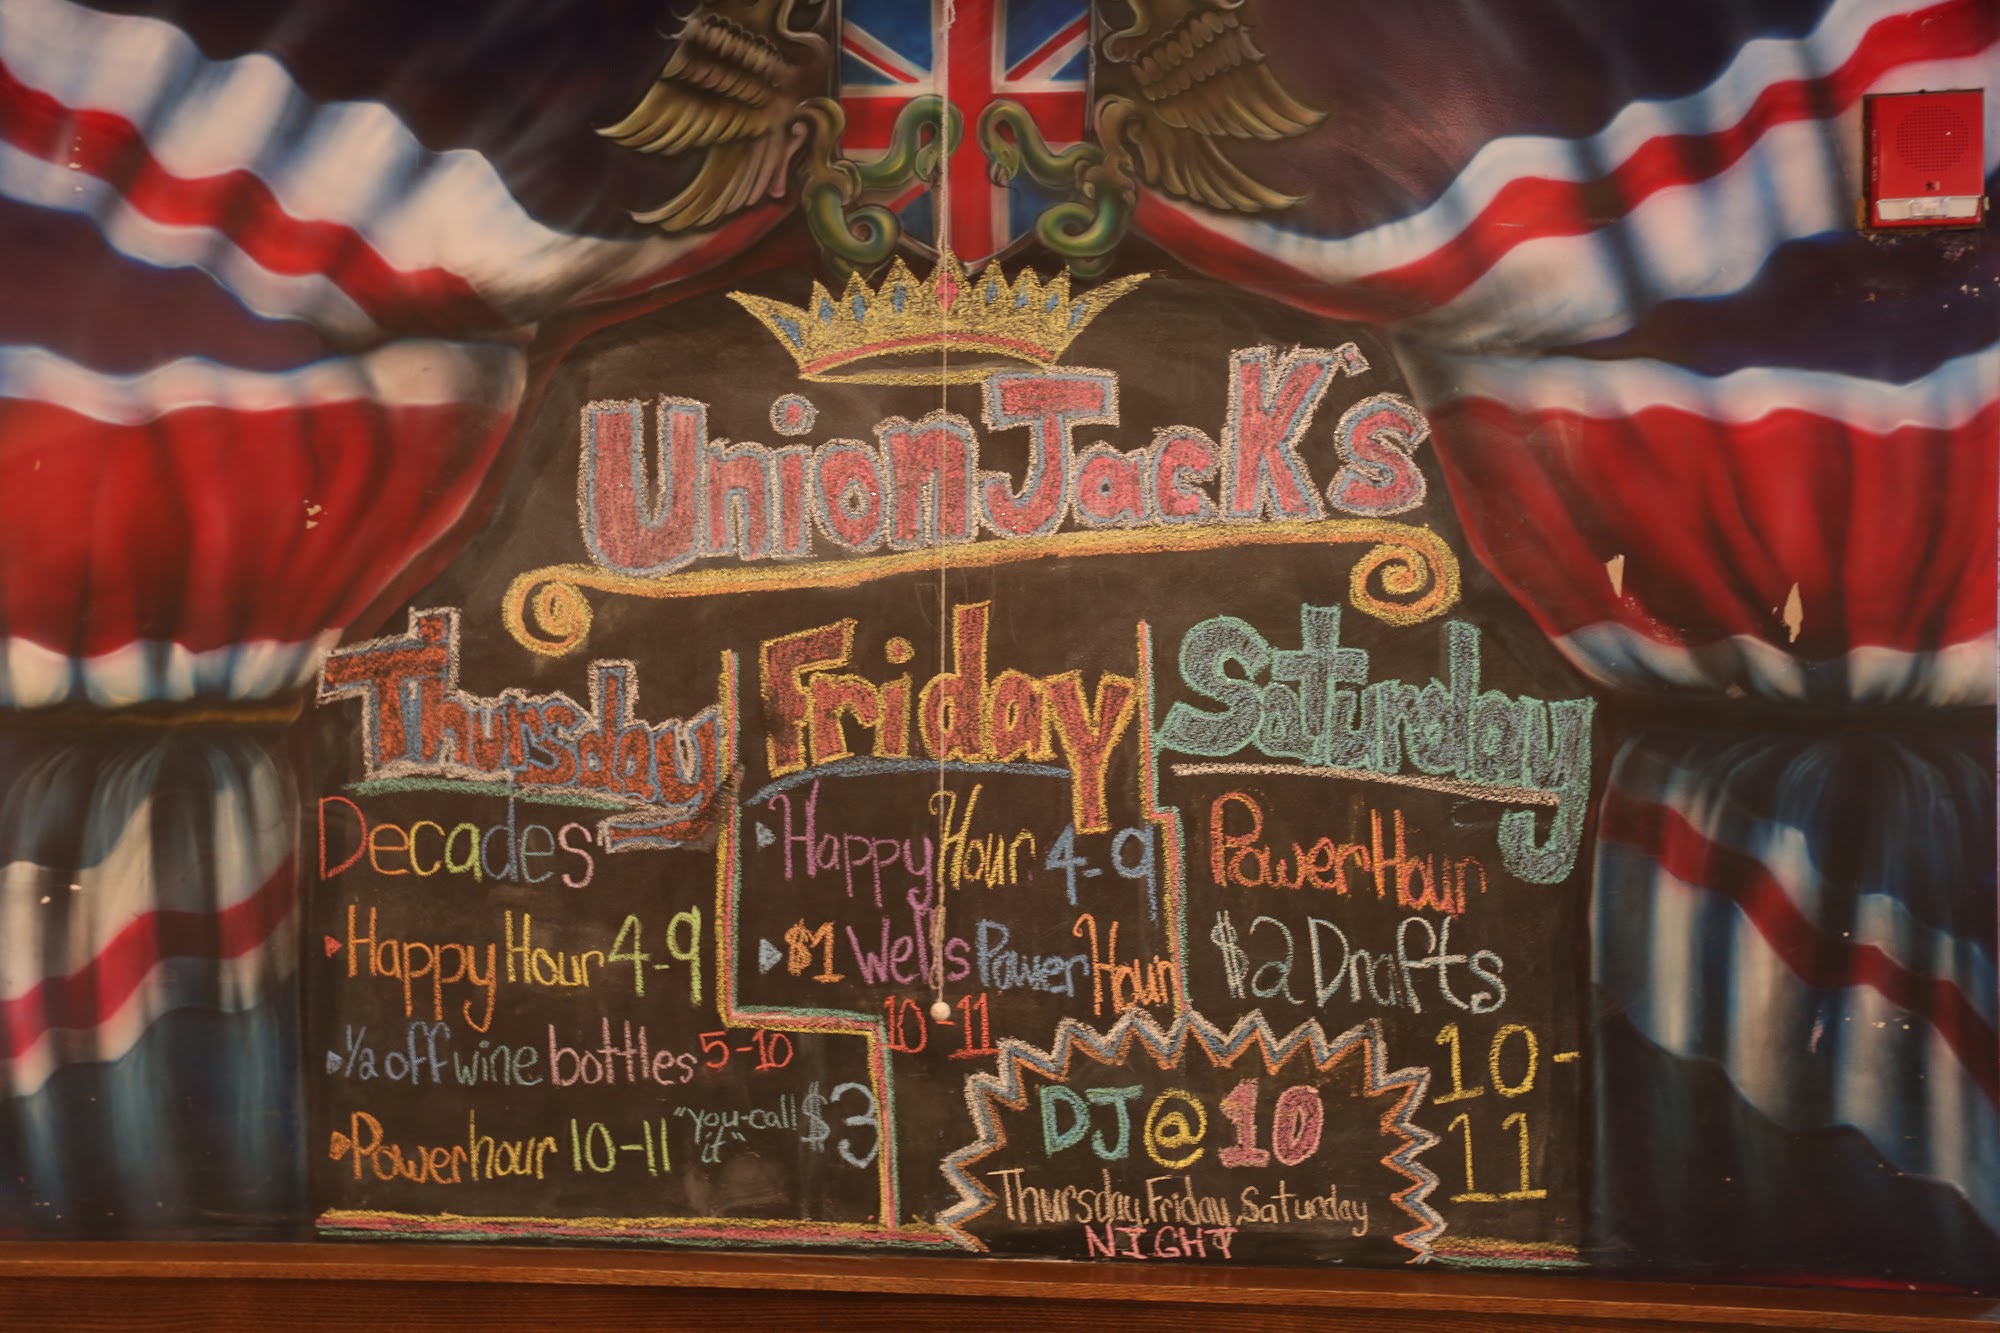 Union Jack's
Thursday
Decades
Happy Hour 4-9
1/2 off wine bottles 5-10
Power hour 10-11 "you-call it" $3
Friday
Happy Hour 4-9
$1 Wells Power Hour
10-11
Saturday
Power Hour
$2 Drafts
10-
11
DJ @ 10
Thursday, Friday, Saturday
NIGHT